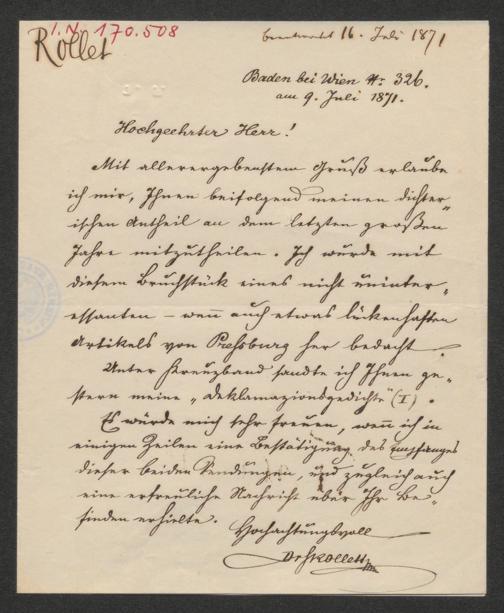 I.N. 170.508
Rollet
beantwortet 16. Juli 1871
Baden bei Wien Nr. 326.
am 9. Juli 1871.
Hochgeehrter Herr!
Mit allerergebenstem Gruß erlaube
ich mir, Ihnen beifolgend meinen dichter-
ischen Antheil an dem letzten großen
Jahre mitzutheilen. Ich wurde mit
diesem Bruchstück eines nicht uninter-
essanten – wenn auch etwas lückenhaften
Artikels von Pressburg her bedacht.
Unter Kreuzband sandte ich Ihnen ge-
stern meine „Deklamazionsgedichte" (I).
Es würde mich sehr freuen, wenn ich in
einigen Zeilen eine Bestätigung des Empfanges
dieser beiden Sendungen, und zugleich auch
eine erfreuliche Nachricht über Ihr Be-
finden erhielte.
Hochachtungsvoll
Dr Hrollett